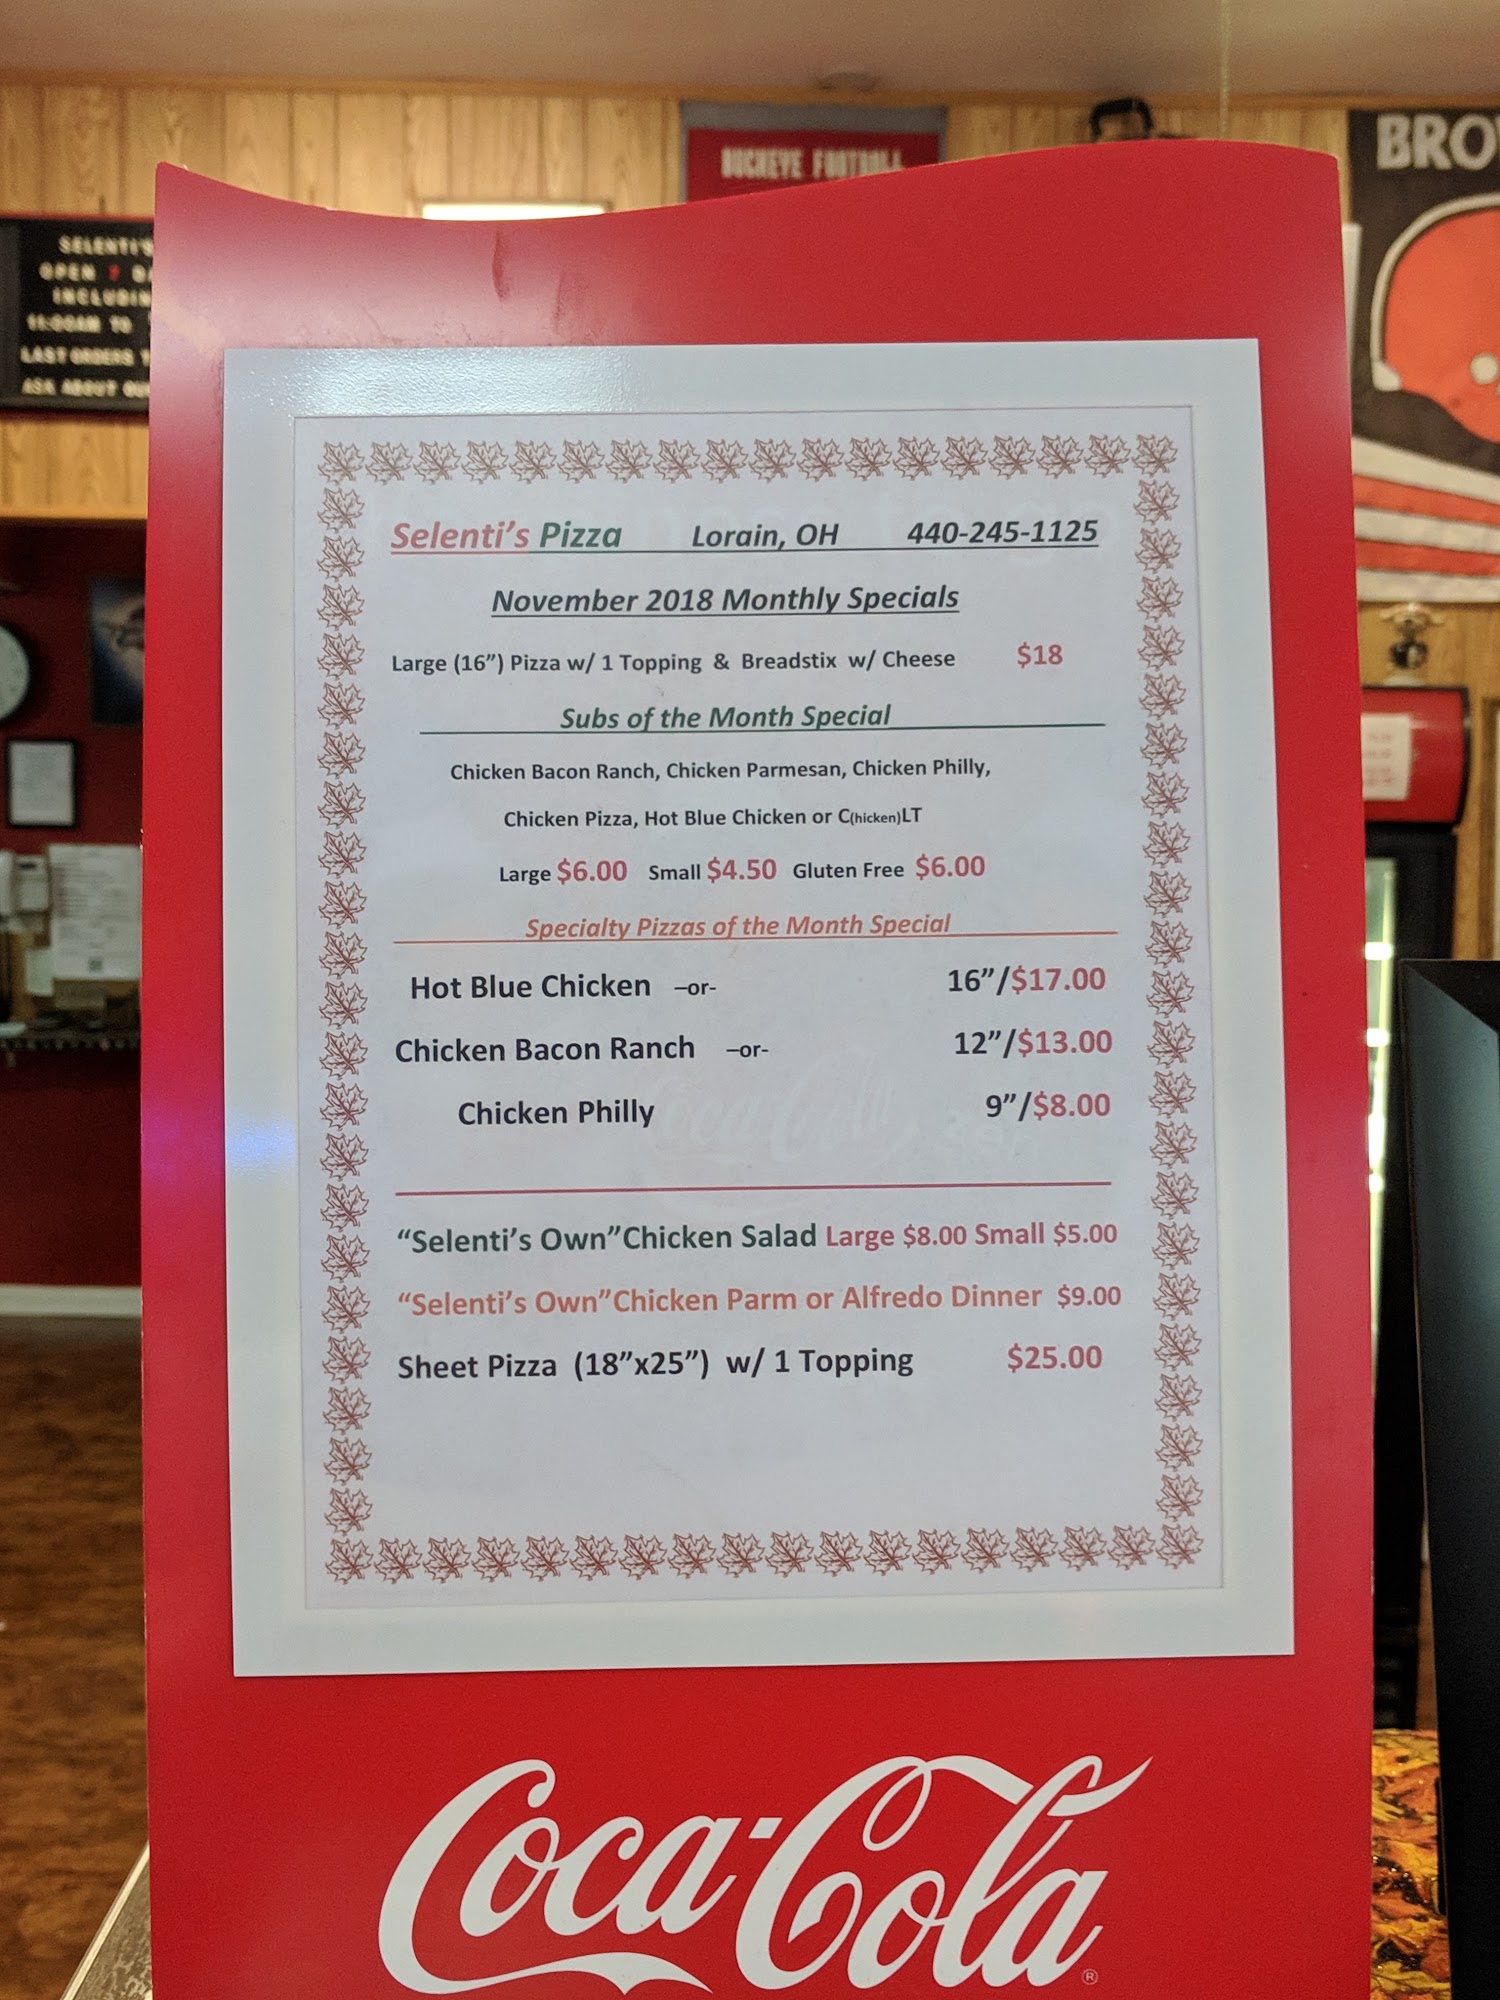 BUCKEYE FOOTBALL
BRO
SELENTI'S
OPEN 7
INCLUDIN
11:00AM TO
LAST ORDERS
ASK ABOUT OU
Selenti's Pizza Lorain, OH 440-245-1125
November 2018 Monthly Specials
Large (16”) Pizza w/ 1 Topping & Breadstix w/ Cheese $18
Subs of the Month Special
Chicken Bacon Ranch, Chicken Parmesan, Chicken Philly,
Chicken Pizza, Hot Blue Chicken or C(hicken)LT
Large $6.00 Small $4.50 Gluten Free $6.00
Specialty Pizzas of the Month Special
Hot Blue Chicken –or- 16”/$17.00
Chicken Bacon Ranch –or- 12”/$13.00
Chicken Philly 9”/$8.00
“Selenti’s Own”Chicken Salad Large $8.00 Small $5.00
“Selenti’s Own”Chicken Parm or Alfredo Dinner $9.00
Sheet Pizza (18”x25”) w/ 1 Topping $25.00
Coca-Cola®